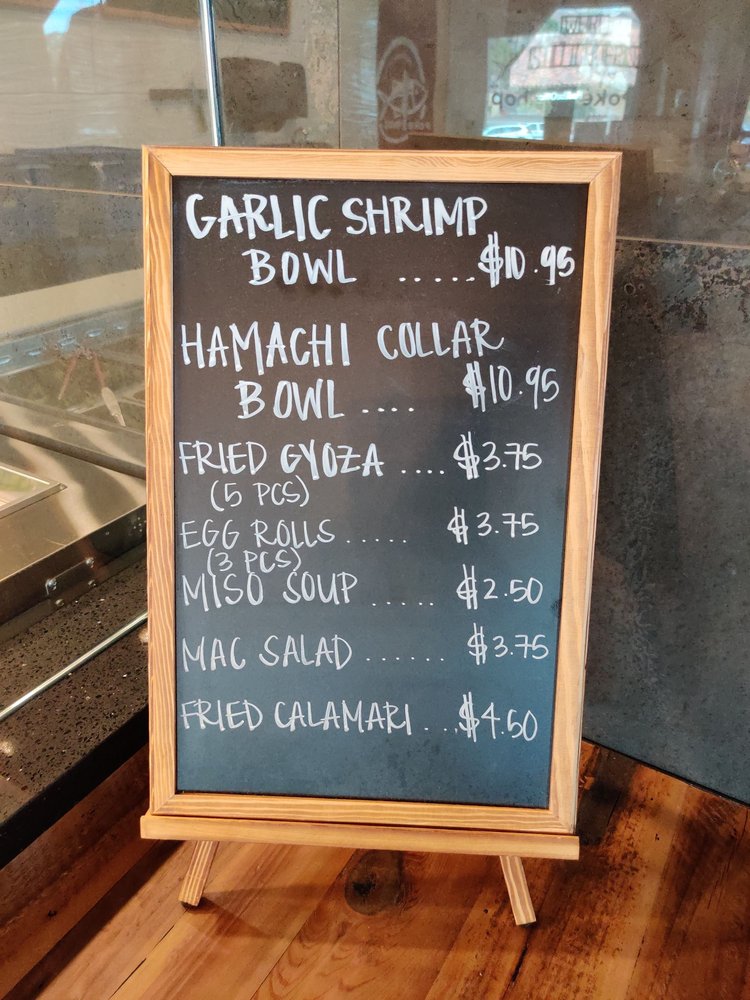 GARLIC SHRIMP
BOWL ..... $10.95
HAMACHI COLLAR
BOWL .... $10.95
FRIED GYOZA .... $3.75
(5 PCS)
EGG ROLLS ..... $3.75
(3 PCS)
MISO SOUP ..... $2.50
MAC SALAD ....... $3.75
FRIED CALAMARI ... $4.50